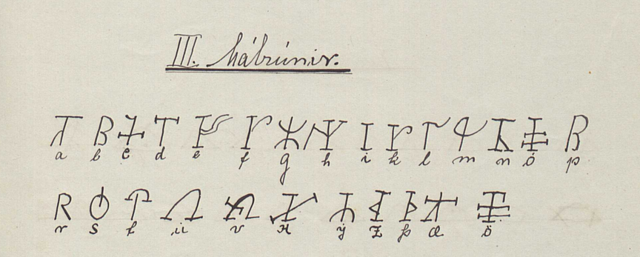 III. Málrúnir.
a b c d e f g h i k l m n ó p
r s t u v x y z þ æ ö